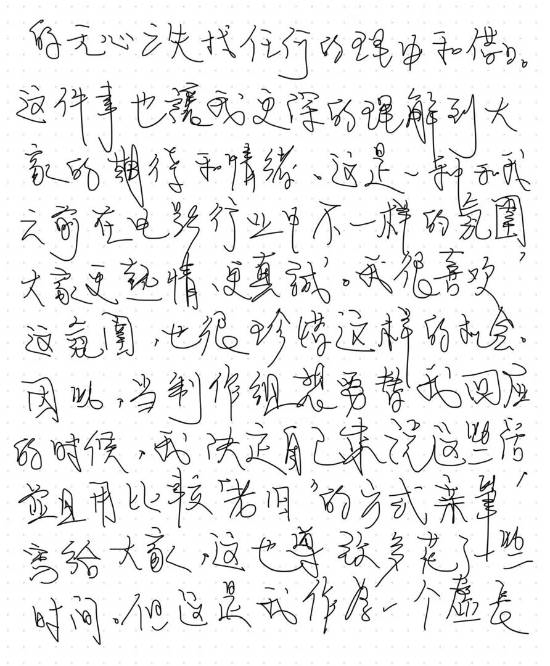 的无心之失找任何的理由和借口。
这件事也讓我更深的理解到大
家的期待和情緒。这是一种和我
之前在电影行业中不一样的氛圍,
大家更熱情、更真誠。我很喜欢
这氛圍,也很珍惜这样的机会。
因此,当制作組想要替我回应
的时候,我决定自己来说这些话,
並且用比較“老旧”的方式亲筆
寫給大家,这也導致多花了一些
时间。但这是我作为一个虛長